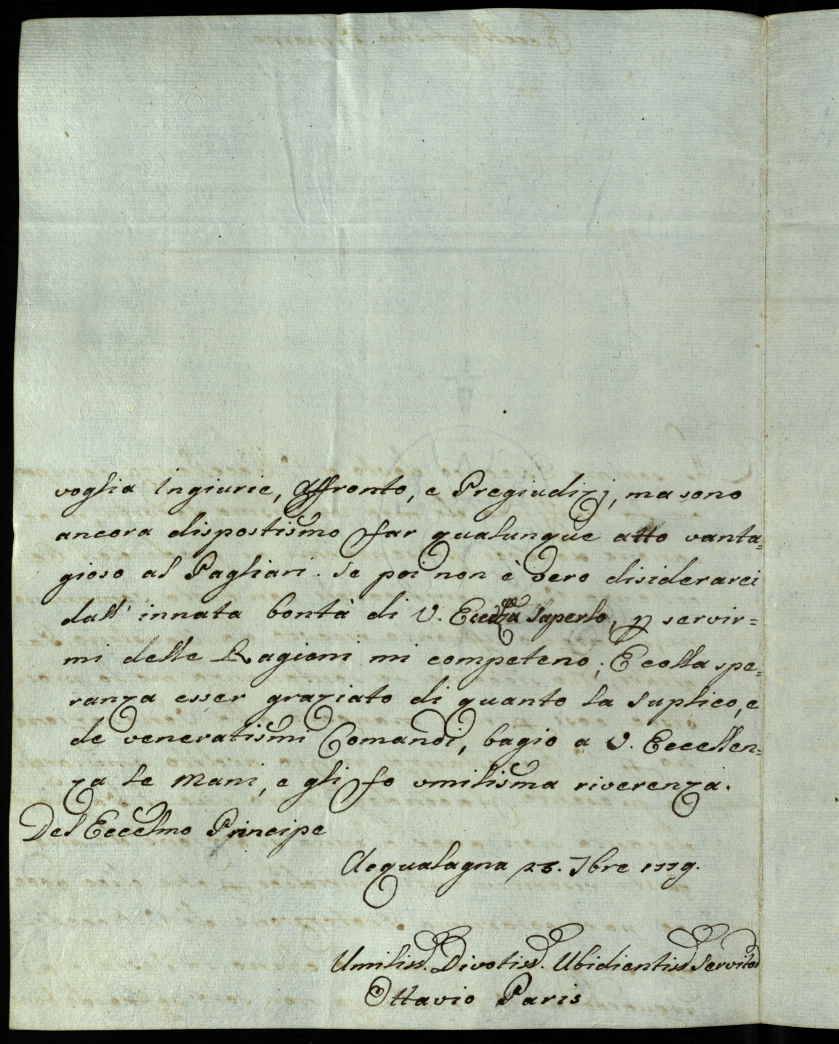 voglia Ingiurie, Affronto, e Pregiudizj, ma sono
ancora dispostismo far qualunque atto vanta=
gioso al Pagliari. Se poi non è vero disiderarci
dall' innata bontà di V. Eccellza saperlo, p servir=
mi delle Ragioni mi competeno; E colla spe=
ranza esser graziato di quanto la suplico, e
de veneratismi Comandi, bagio a V. Eccellen=
za le mani, e gli fo umilisma riverenza.
Del Eccelmo Principe
Acqualagna 28. 7bre 1779.
Umiliss. Divotiss. Ubidientiss Servitor
Ottavio Paris